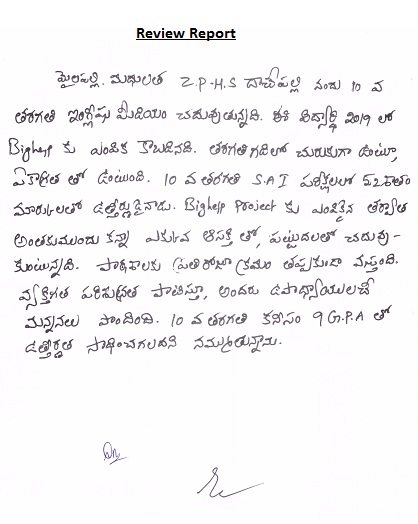 Review Report
మైలపల్లి. మధులత Z.P-H.S దాచేపల్లి నందు 10 వ
తరగతి ఇంగ్లీషు మీడియం చదువుతున్నది. ఈ విద్యార్థి 2019 లో
Bighelp కు ఎంపిక కాబడినది. తరగతి గదిలో చురుకుగా ఉంటూ,
ఏకాగ్రత తో ఉంటుంది. 10 వ తరగతి S.A I పరీక్షలలో 52 శాతం
మార్కులతో ఉత్తీర్ణురైనాడు. Bighelp Project కు ఎంపికైన తర్వాత
అంతకుముందు కన్నా ఎక్కువ ఆసక్తి తో, పట్టుదలతో చదువు-
కుంటున్నది. పాఠశాలకు ప్రతిరోజూ క్రమం తప్పకుండా వస్తుంది.
వ్యక్తిగత పరిశుభ్రత పాటిస్తూ, అందరు ఉపాధ్యాయులచే
మన్ననలు పొందింది. 10 వ తరగతి కనీసం 9 G.P.A తో
ఉత్తీర్ణత సాధించగలదని నమ్ముతున్నాను.